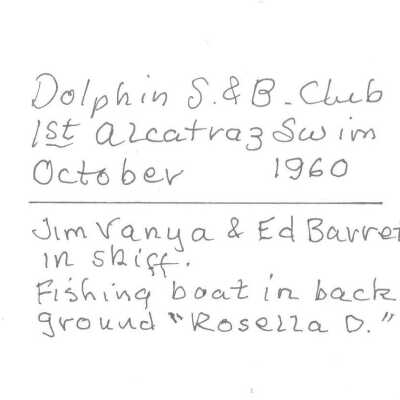 Dolphin S. & B. Club
1st Alcatraz Swim
October 1960
Jim Vanya & Ed Barret
in skiff.
Fishing boat in back
ground "Rosella D."